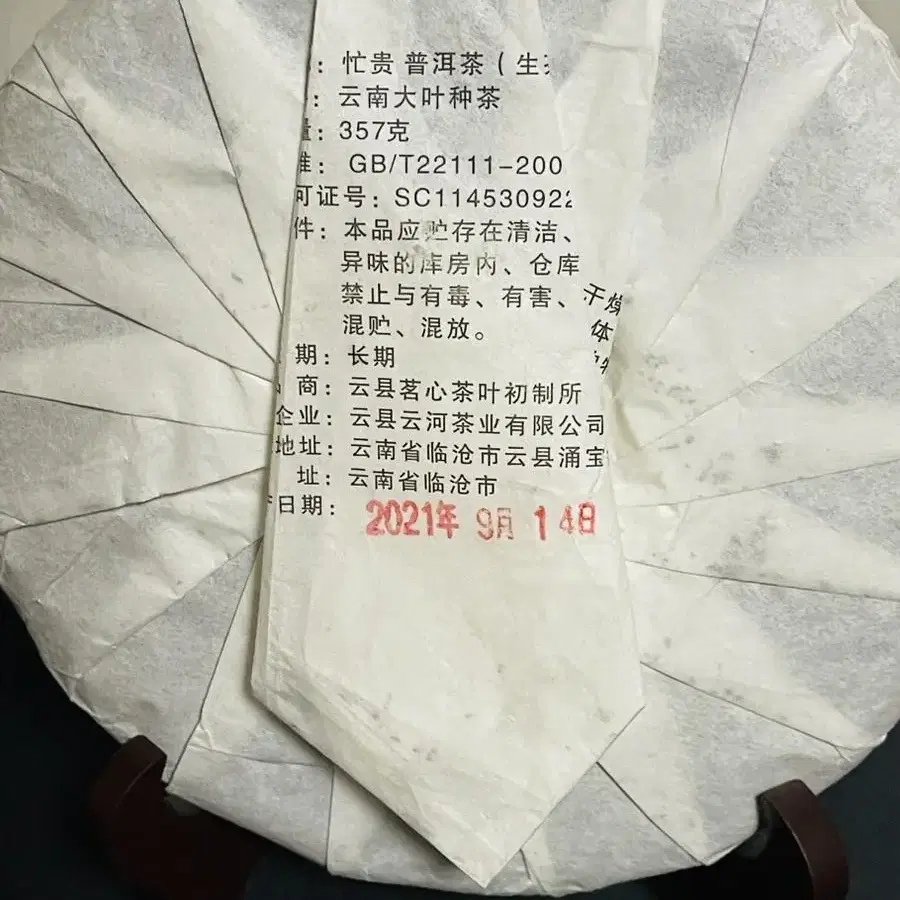 ：忙贵 普洱茶（生
：云南大叶种茶
量：357克
准：GB/T22111-200
可证号：SC114530922
件：本品应贮存在清洁、
异味的库房内、仓库
禁止与有毒、有害、
混贮、混放。
干燥
体
期：长期
商：云县茗心茶叶初制所
企业：云县云河茶业有限公司
地址：云南省临沧市云县涌宝
址：云南省临沧市
日期：2021年 9月 14日